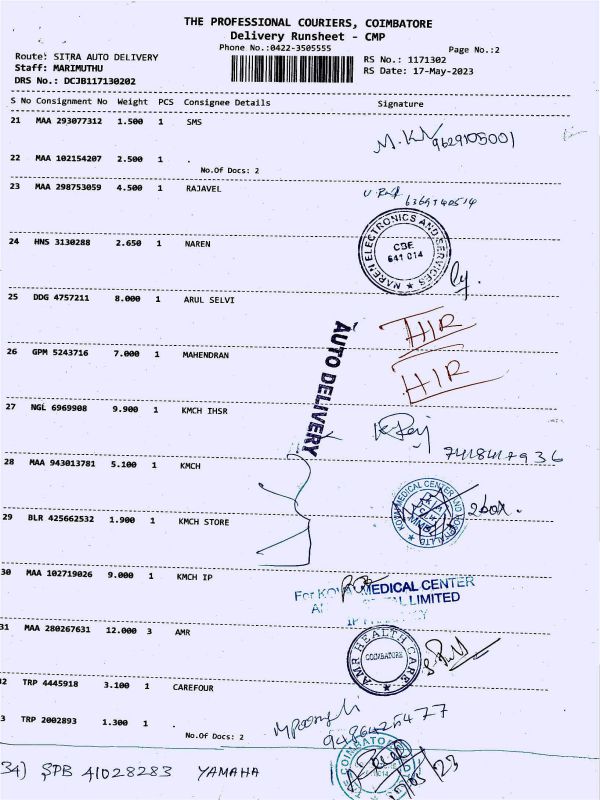 THE PROFESSIONAL COURIERS, COIMBATORE
Delivery Runsheet - CMP
Phone No.:0422-3505555
Page No.:2
Route: SITRA AUTO DELIVERY
RS No.: 1171302
Staff: MARIMUTHU
RS Date: 17-May-2023
DRS No.: DCJB117130202
S No Consignment No Weight PCS Consignee Details Signature
21 MAA 293077312 1.500 1 SMS
9629105001
22 MAA 102154207 2.500 1 .
No.Of Docs: 2
23 MAA 298753059 4.500 1 RAJAVEL
6369140514
24 HNS 3130288 2.650 1 NAREN
NAREN ELECTRONICS AND SERVICES
CBE
641 014
25 DDG 4757211 8.000 1 ARUL SELVI
AUTO DELIVERY
26 GPM 5243716 7.000 1 MAHENDRAN
27 NGL 6969908 9.900 1 KMCH IHSR
7418417936
28 MAA 943013781 5.100 1 KMCH
2 box.
29 BLR 425662532 1.900 1 KMCH STORE
30 MAA 102719026 9.000 1 KMCH IP
MEDICAL CENTER
LIMITED
31 MAA 280267631 12.000 3 AMR
AMR HEALTH CARE
COIMBATORE
2 TRP 4445918 3.100 1 CAREFOUR
3 TRP 2002893 1.300 1 .
No.Of Docs: 2
9486425477
34) SPB 41028283 YAMAHA